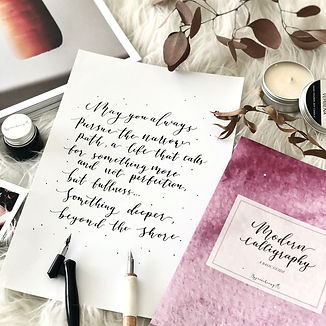 May you always
pursue the narrow
path, a life that calls
for something more
and not perfection,
but fullness...
Something deeper,
beyond the shore.
Modern
Calligraphy